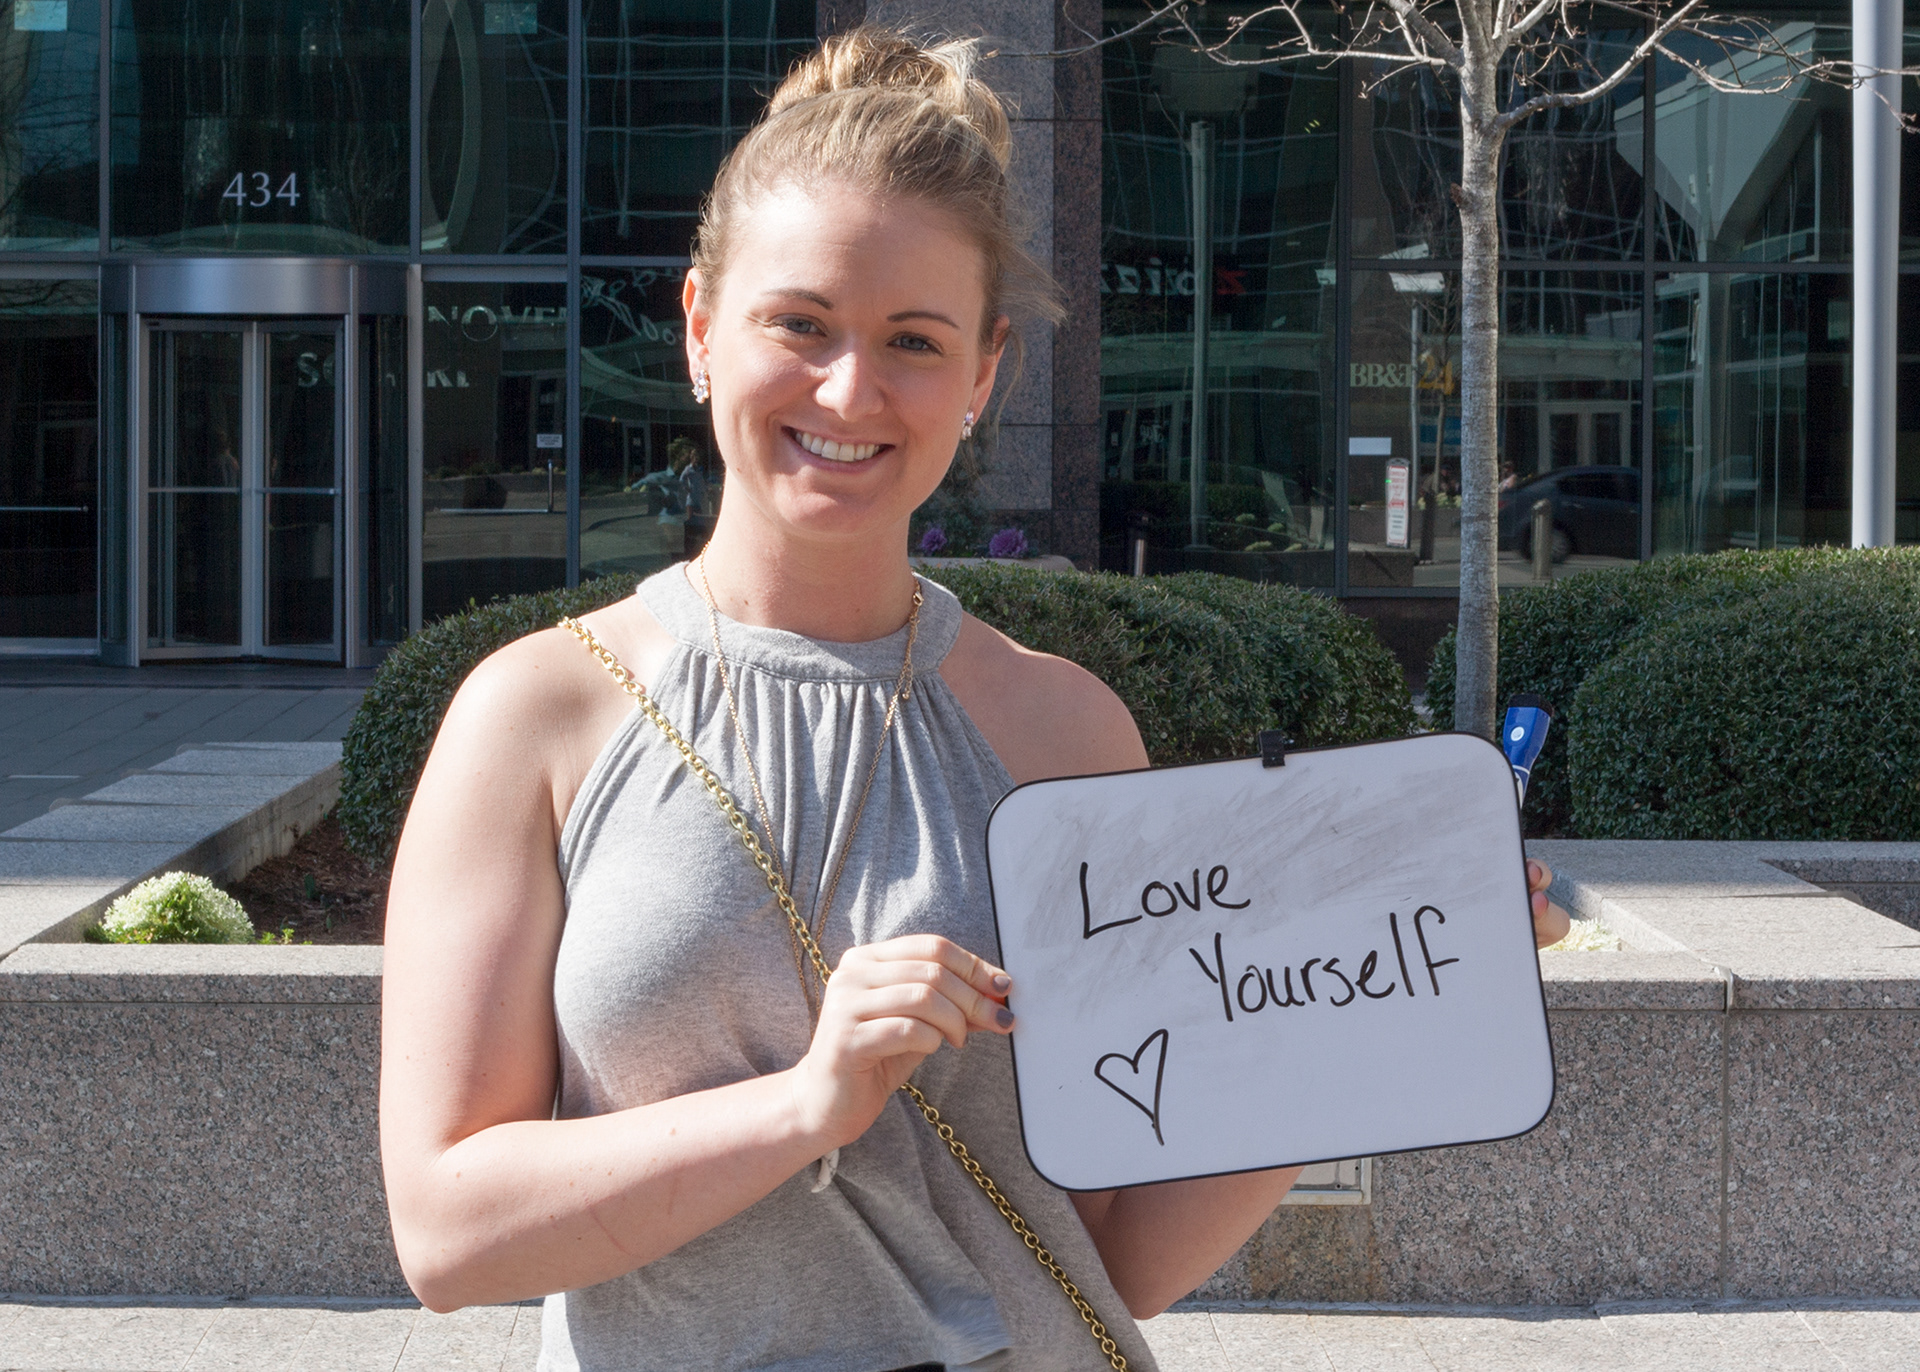 434
BB&T
Love
Yourself